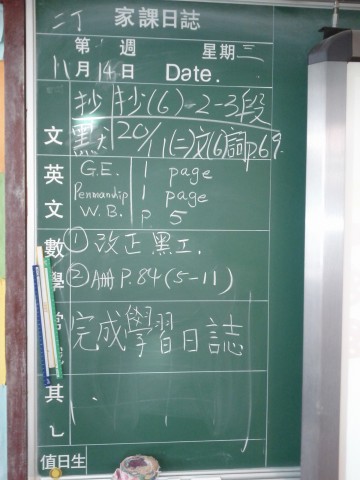 二丁 家課日誌
第 週 星期三
11月14日 Date.
抄 抄(6)-2-3段
文 默 20/11(二)文(6)詞p.69.
英 G.E. 1 page
Penmanship 1 page
文 W.B. P. 5
數 ① 改正黑工.
學 ② A冊 P.84(5-11)
常 完成學習日誌
其
值日生